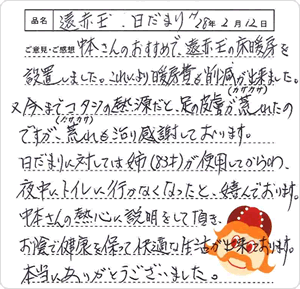 品名 遠赤王.日だまり" 28年2月12日
ご意見・ご感想 中本さんのおすすめで、遠赤王の床暖房を
設置しました。これにより暖房費も削減が出来ました。
(カサカサ)
又今までコタツの熱源だと、足の皮膚が荒れたの
(カサカサ)
ですが、荒れも治り感謝しております。
日だまりに対しては姉(83才)が使用してからは、
夜中にトイレに行かなくなったと、嬉んでおります。
中本さんの熱心に説明をして頂き、
お陰で健康を保って快適な生活が出来ております。
本当にありがとうございました。